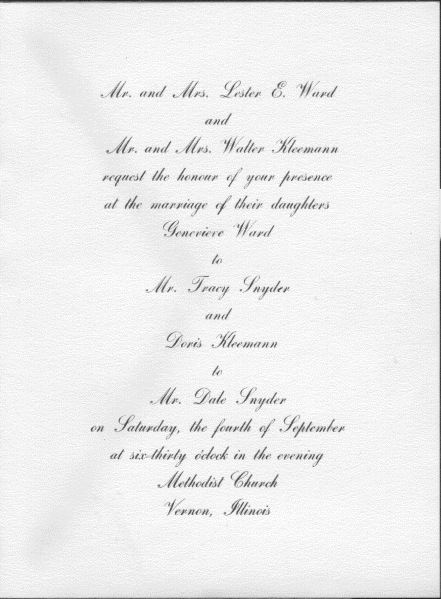 Mr. and Mrs. Lester E. Ward
and
Mr. and Mrs. Walter Kleemann
request the honour of your presence
at the marriage of their daughters
Genevieve Ward
to
Mr. Tracy Snyder
and
Doris Kleemann
to
Mr. Dale Snyder
on Saturday, the fourth of September
at six-thirty o'clock in the evening
Methodist Church
Vernon, Illinois